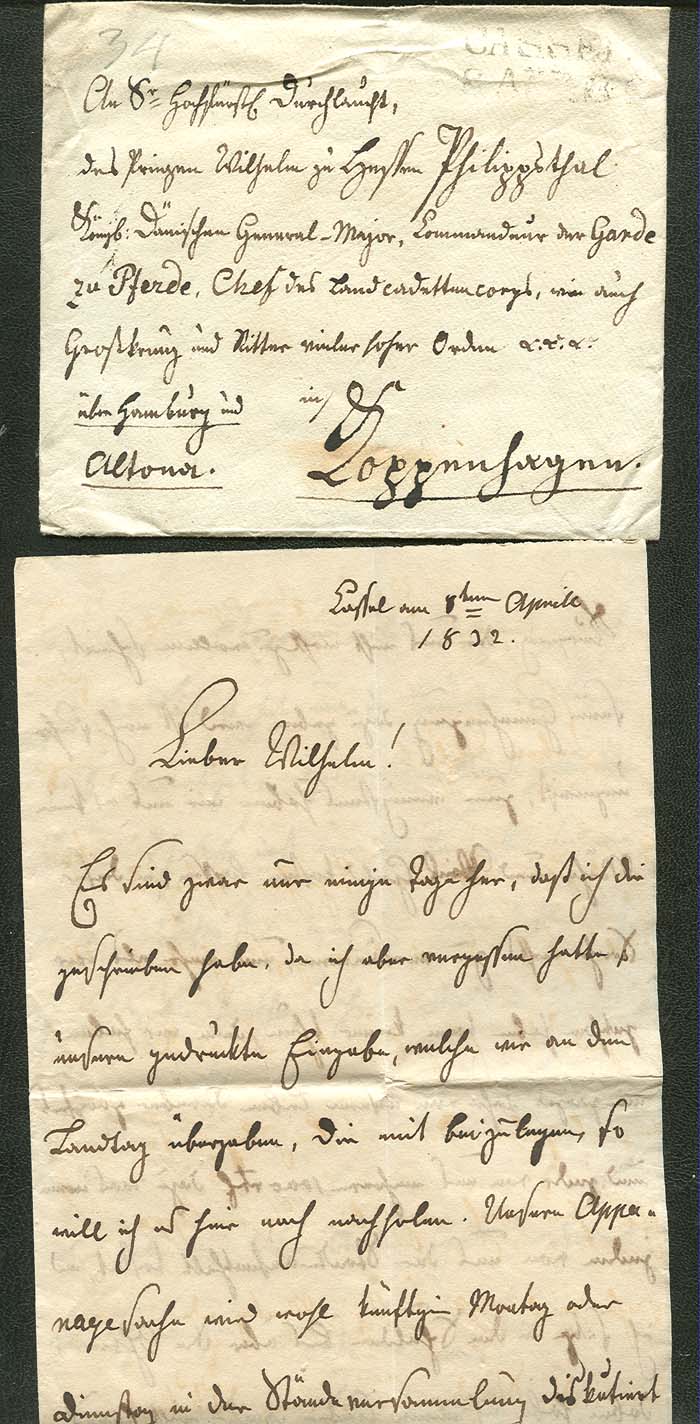 34
CASSEL
An Sr Hochfürstl Durchlaucht,
des Prinzen Wilhelm zu Hessen Philippsthal
Königl: Dänischen General-Major, Commandeur der Garde
zu Pferde, Chef des Landcadettencorps, wie auch
Großkreuz und Ritter vieler hoher Orden &.&.&.
über Hamburg und
Altona.
in
Coppenhagen.
Cassel am 8ten Aprill
1832.
Lieber Wilhelm!
Es sind zwar nur einige Tage her, daß ich dir
geschrieben habe, da ich aber vergessen hatte
unsere gedruckte Eingabe, welche wir an den
Landtag übergeben, Dir mit beizulegen, so
will ich es hier noch nachholen. Unsere Appa-
nagesache wird wohl künftigen Montag oder
Dienstag in der Ständeversammlung diskutirt